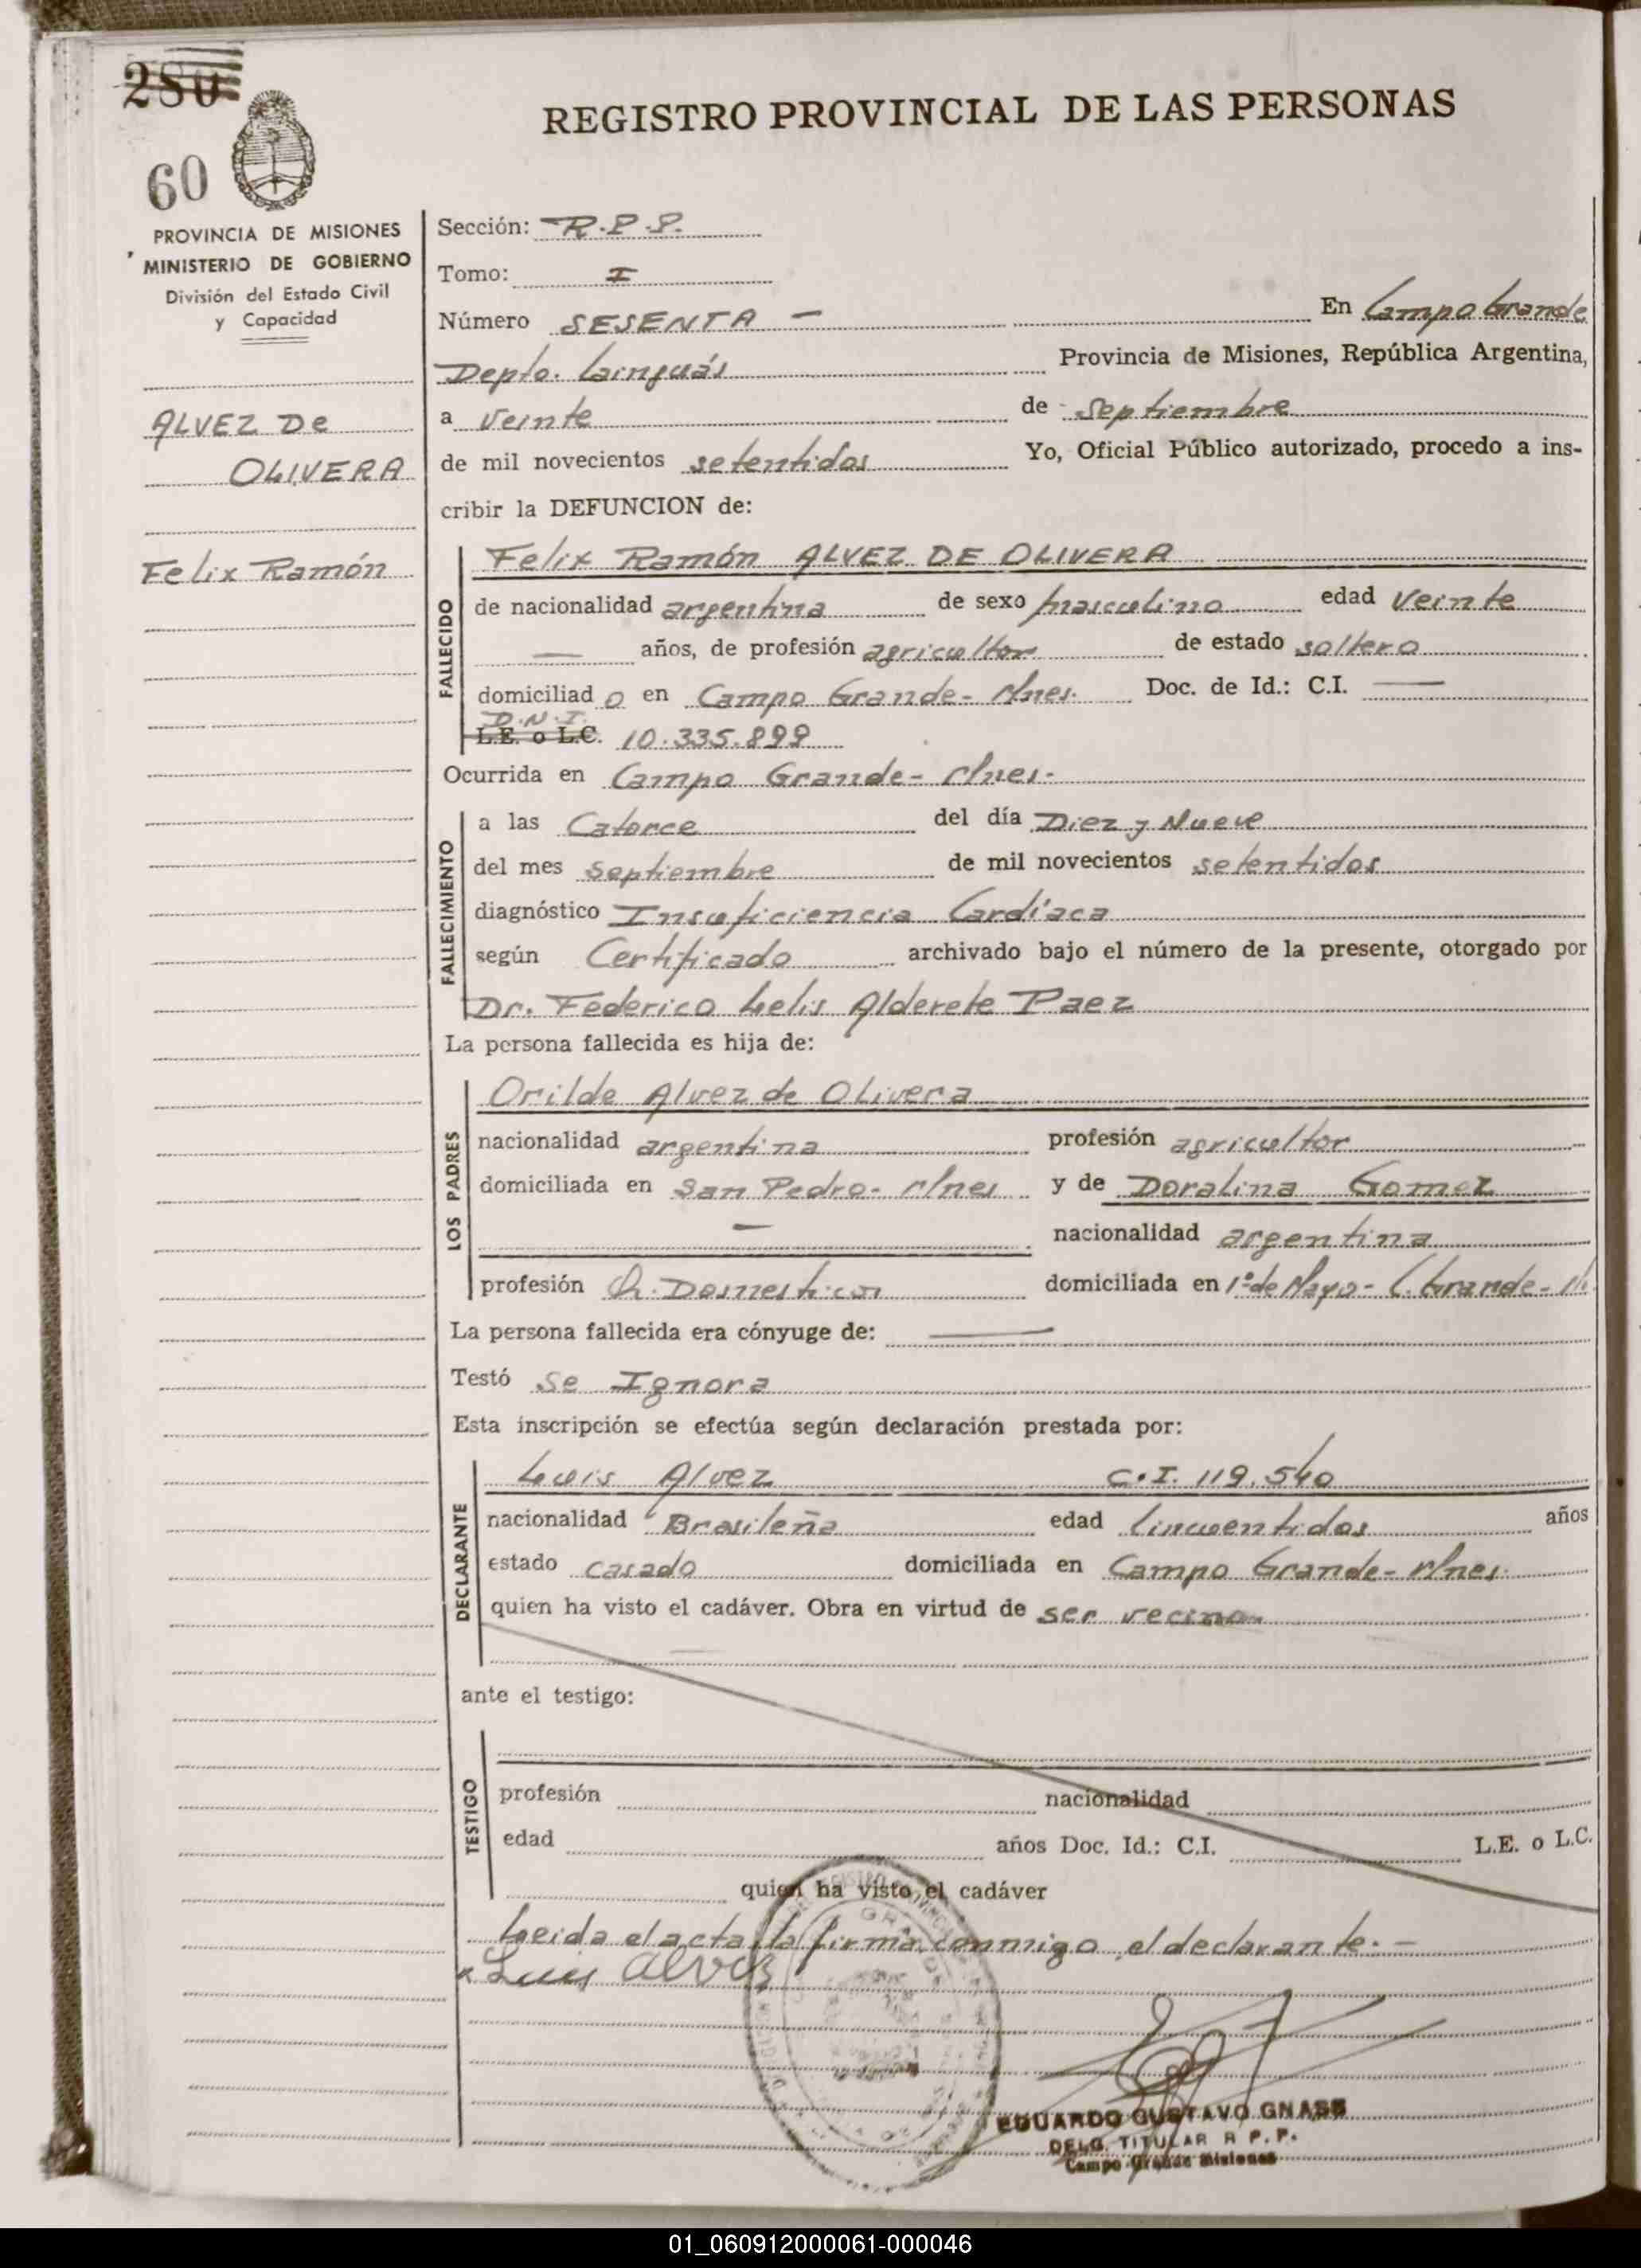 280
60
REGISTRO PROVINCIAL DE LAS PERSONAS
PROVINCIA DE MISIONES
MINISTERIO DE GOBIERNO
División del Estado Civil
y Capacidad
ALVEZ De
OLIVERA
Felix Ramón
Sección: R.P.P.
Tomo: I
Número SESENTA — En Campo Grande
Depto. Cainguás Provincia de Misiones, República Argentina,
a veinte de septiembre
de mil novecientos setentidos Yo, Oficial Público autorizado, procedo a ins-
cribir la DEFUNCION de:
FALLECIDO
Felix Ramón ALVEZ DE OLIVERA
de nacionalidad argentina de sexo masculino edad veinte
— años, de profesión agricultor de estado soltero
domiciliad o en Campo Grande- Mnes. Doc. de Id.: C.I. —
D.N.I.
L.E. o L.C. 10.335.899
Ocurrida en Campo Grande- Mnes.
FALLECIMIENTO
a las Catorce del día Diez y Nueve
del mes septiembre de mil novecientos setentidos
diagnóstico Insuficiencia Cardíaca
según Certificado archivado bajo el número de la presente, otorgado por
Dr. Federico Lelis Alderete Paez
La persona fallecida es hija de:
LOS PADRES
Orildo Alvez de Olivera
nacionalidad argentina profesión agricultor
domiciliada en San Pedro- Mnes y de Doralina Gomez
— nacionalidad argentina
profesión Q. Domesticos domiciliada en 1º de Mayo- C. Grande- M.
La persona fallecida era cónyuge de: —
Testó se Ignora
Esta inscripción se efectúa según declaración prestada por:
DECLARANTE
Luis Alvez C.I. 119.540
nacionalidad Brasileña edad Cincuentidos años
estado casado domiciliada en Campo Grande- Mnes.
quien ha visto el cadáver. Obra en virtud de ser vecino
ante el testigo:
TESTIGO
profesión nacionalidad
edad años Doc. Id.: C.I. L.E. o L.C.
quien ha visto el cadáver
Leida el acta, la firma conmigo el declarante. —
x Luis Alvez
EDUARDO GUSTAVO GNASS
DELG. TITULAR R P. P.
Campo Grande Misiones
01_060912000061-000046